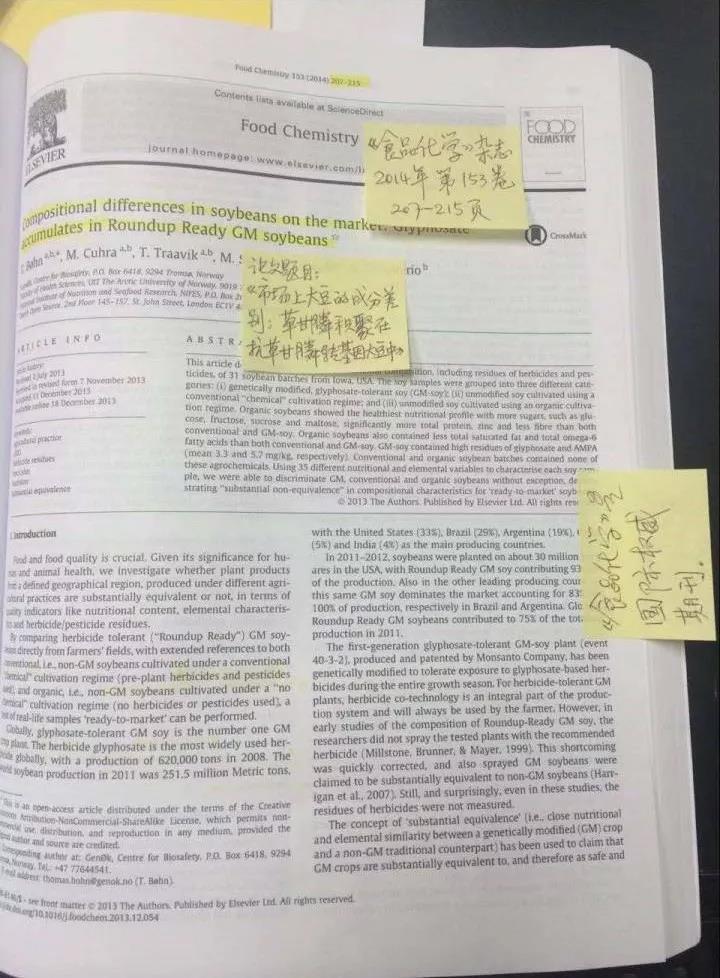 Food Chemistry 153 (2014) 207–215
Contents lists available at ScienceDirect
Food Chemistry
journal homepage: www.elsevier.com/
ELSEVIER
FOOD
CHEMISTRY
《食品化学》杂志
2014年第153卷
207-215页
Compositional differences in soybeans on the market: Glyphosate
accumulates in Roundup Ready GM soybeans
CrossMark
Bøhn a,b,*, M. Cuhra a,b, T. Traavik a,b, M.
rio b
Centre for Biosafety, P.O. Box 6418, 9294 Tromsø, Norway
Health Sciences, UIT The Arctic University of Norway, 9019
Institute of Nutrition and Seafood Research, NIFES, P.O. Box
Open Source, 2nd Floor 145–157, St. John Street, London EC1V
论文题目:
《市场上大豆的成分差
别:草甘膦积聚在
抗草甘膦转基因大豆中》
ARTICLE INFO
history:
2 July 2013
in revised form 7 November 2013
11 December 2013
online 18 December 2013
practice
residues
substantial equivalence
ABSTR
This article d
position, including residues of herbicides and pes-
ticides, of 31 soybean batches from Iowa, USA. The soy samples were grouped into three different cate-
gories: (i) genetically modified, glyphosate-tolerant soy (GM-soy); (ii) unmodified soy cultivated using a
conventional "chemical" cultivation regime; and (iii) unmodified soy cultivated using an organic cultiva-
tion regime. Organic soybeans showed the healthiest nutritional profile with more sugars, such as glu-
cose, fructose, sucrose and maltose, significantly more total protein, zinc and less fibre than both
conventional and GM-soy. Organic soybeans also contained less total saturated fat and total omega-6
fatty acids than both conventional and GM-soy. GM-soy contained high residues of glyphosate and AMPA
(mean 3.3 and 5.7 mg/kg, respectively). Conventional and organic soybean batches contained none of
these agrochemicals. Using 35 different nutritional and elemental variables to characterise each soy
ple, we were able to discriminate GM, conventional and organic soybeans without exception, de
strating "substantial non-equivalence" in compositional characteristics for 'ready-to-market' soyb
© 2013 The Authors. Published by Elsevier Ltd. All rights res
《食品化学》是
国际权威
期刊.
1. Introduction
Food and food quality is crucial. Given its significance for hu-
and animal health, we investigate whether plant products
a defined geographical region, produced under different agri-
practices are substantially equivalent or not, in terms of
quality indicators like nutritional content, elemental characteris-
and herbicide/pesticide residues.
By comparing herbicide tolerant ("Roundup Ready") GM soy-
directly from farmers' fields, with extended references to both
conventional, i.e., non-GM soybeans cultivated under a conventional
"chemical" cultivation regime (pre-plant herbicides and pesticides
used), and organic, i.e., non-GM soybeans cultivated under a "no
chemical" cultivation regime (no herbicides or pesticides used), a
of real-life samples 'ready-to-market' can be performed.
Globally, glyphosate-tolerant GM soy is the number one GM
crop plant. The herbicide glyphosate is the most widely used her-
globally, with a production of 620,000 tons in 2008. The
soybean production in 2011 was 251.5 million Metric tons,
This is an open-access article distributed under the terms of the Creative
Attribution-NonCommercial-ShareAlike License, which permits non-
use, distribution, and reproduction in any medium, provided the
author and source are credited.
Corresponding author at: GenØk, Centre for Biosafety, P.O. Box 6418, 9294
Norway. Tel.: +47 77644541.
address: thomas.bohn@genok.no (T. Bøhn).
with the United States (33%), Brazil (29%), Argentina (19%),
(5%) and India (4%) as the main producing countries.
In 2011–2012, soybeans were planted on about 30 million
ares in the USA, with Roundup Ready GM soy contributing 93
of the production. Also in the other leading producing coun
this same GM soy dominates the market accounting for 83
100% of production, respectively in Brazil and Argentina. Glo
Roundup Ready GM soybeans contributed to 75% of the tot
production in 2011.
The first-generation glyphosate-tolerant GM-soy plant (event
40-3-2), produced and patented by Monsanto Company, has been
genetically modified to tolerate exposure to glyphosate-based her-
bicides during the entire growth season. For herbicide-tolerant GM
plants, herbicide co-technology is an integral part of the produc-
tion system and will always be used by the farmer. However, in
early studies of the composition of Roundup-Ready GM soy, the
researchers did not spray the tested plants with the recommended
herbicide (Millstone, Brunner, & Mayer, 1999). This shortcoming
was quickly corrected, and also sprayed GM soybeans were
claimed to be substantially equivalent to non-GM soybeans (Harr-
igan et al., 2007). Still, and surprisingly, even in these studies, the
residues of herbicides were not measured.
The concept of 'substantial equivalence' (i.e., close nutritional
and elemental similarity between a genetically modified (GM) crop
and a non-GM traditional counterpart) has been used to claim that
GM crops are substantially equivalent to, and therefore as safe and
see front matter © 2013 The Authors. Published by Elsevier Ltd. All rights reserved.
doi.org/10.1016/j.foodchem.2013.12.054